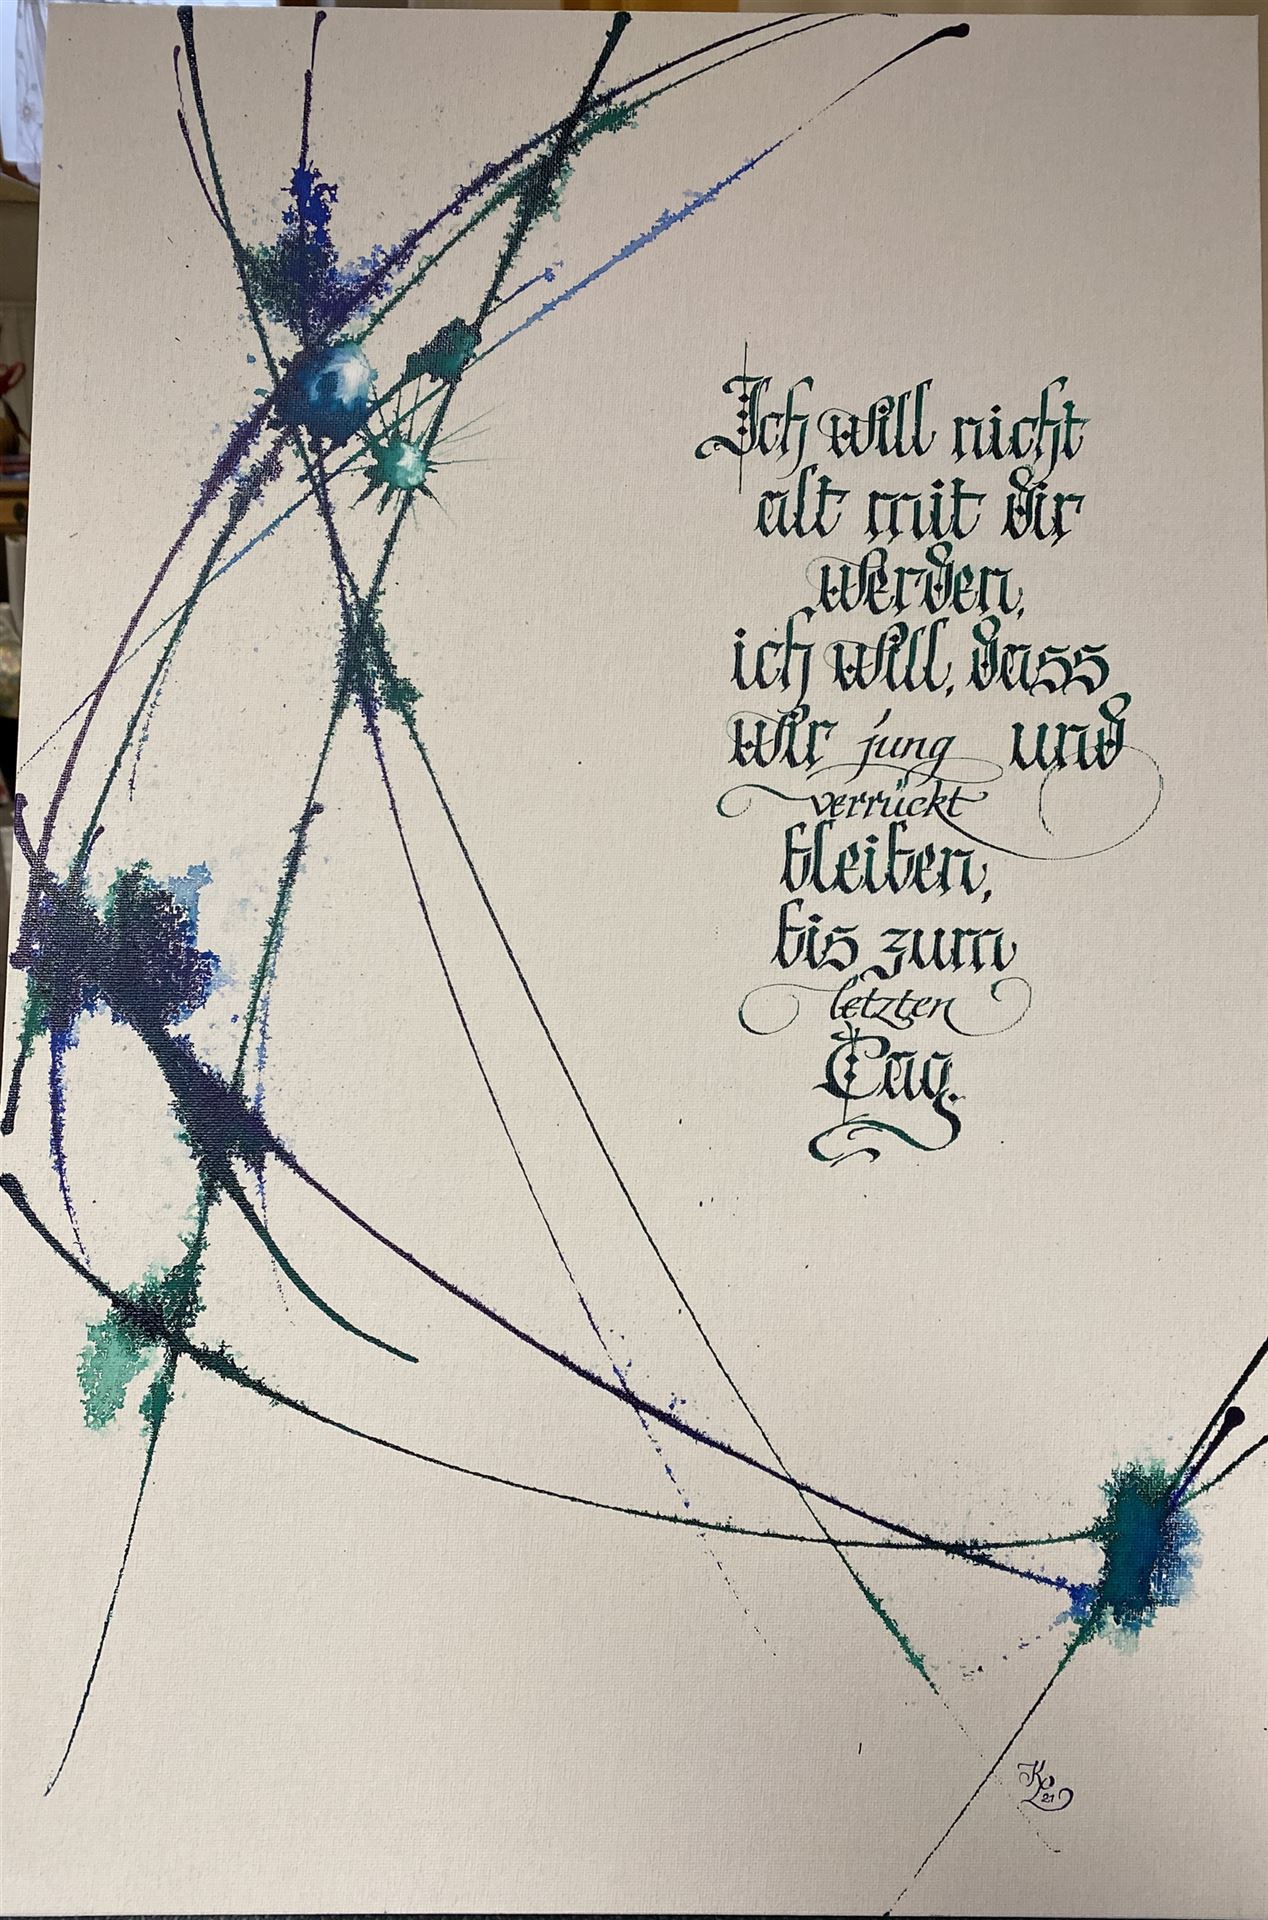 Ich will nicht
alt mit dir
werden,
ich will, dass
wir jung und
verrückt
bleiben,
bis zum
letzten
Tag.
21